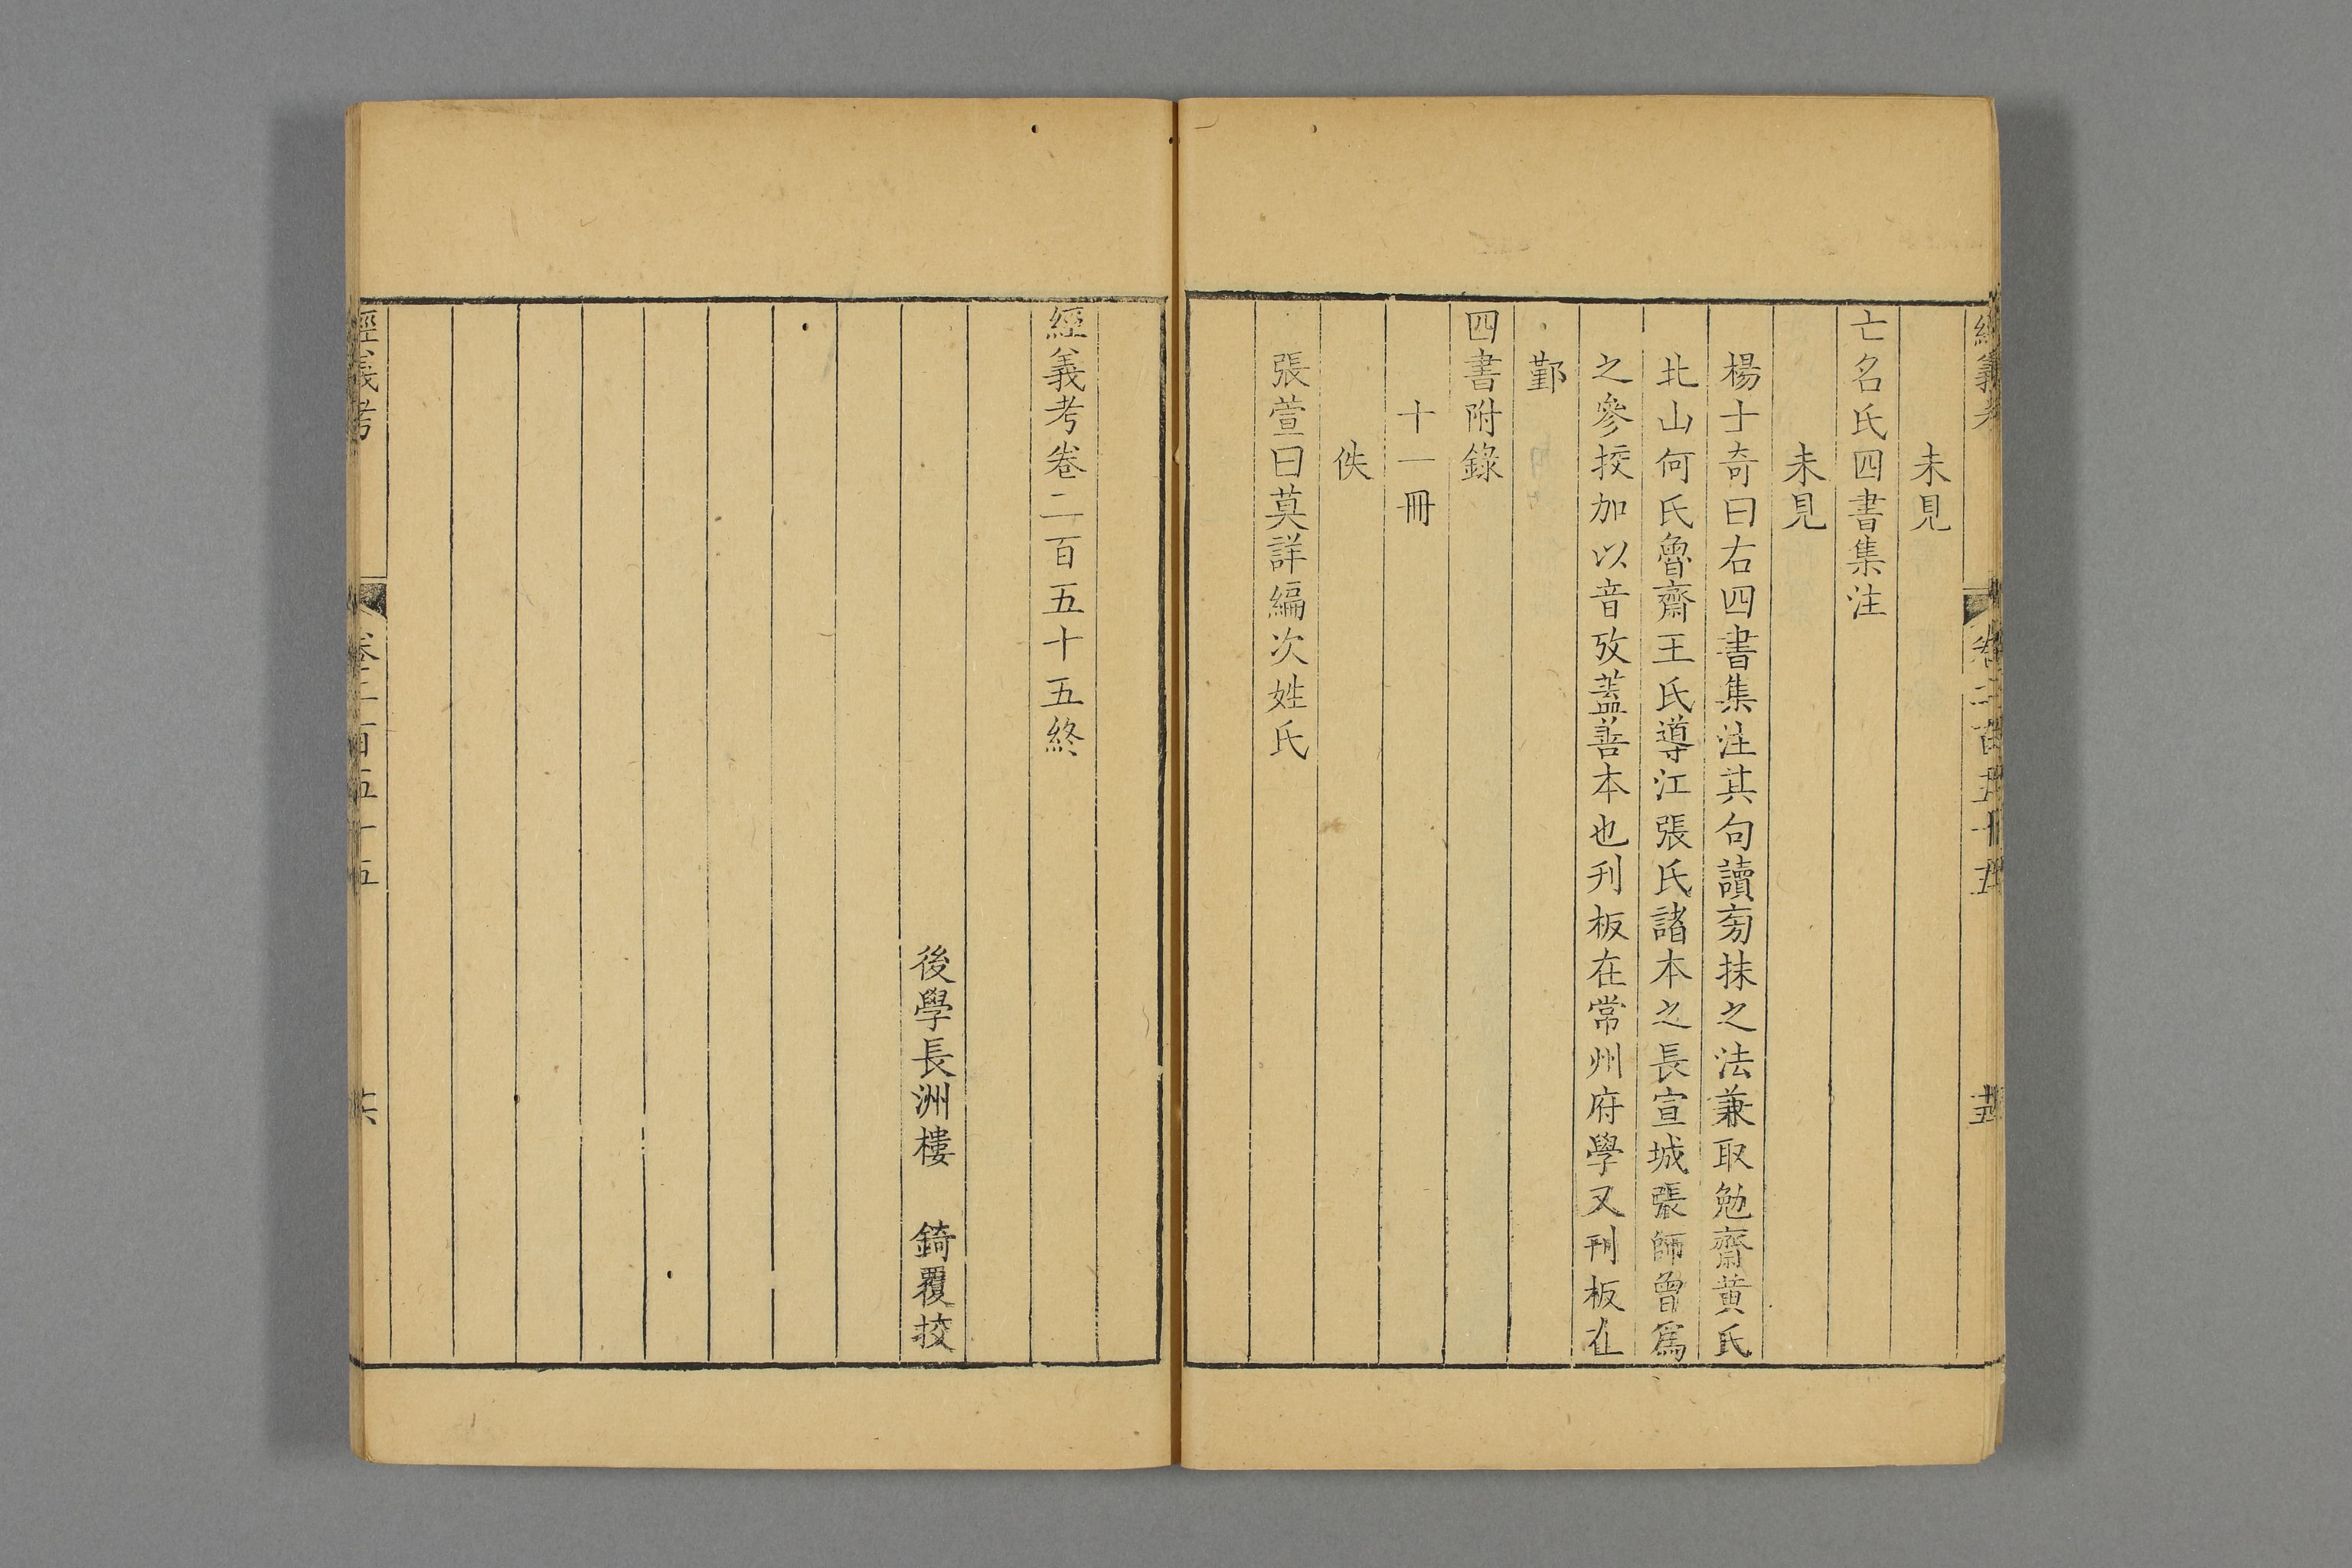 經義考 卷二百五十五 十五
未見
亡名氏四書集注
未見
楊士奇曰右四書集注其句讀㫄抹之法兼取勉齋黄氏
北山何氏魯齋王氏導江張氏諸本之長宣城張師曾爲
之參挍加以音攷蓋善本也刋板在常州府學又刋板在
鄞
四書附錄
十一冊
佚
張萱曰莫詳編次姓氏
經義考卷二百五十五終
後學長洲樓 錡覆挍
經義考 卷二百五十五 十六